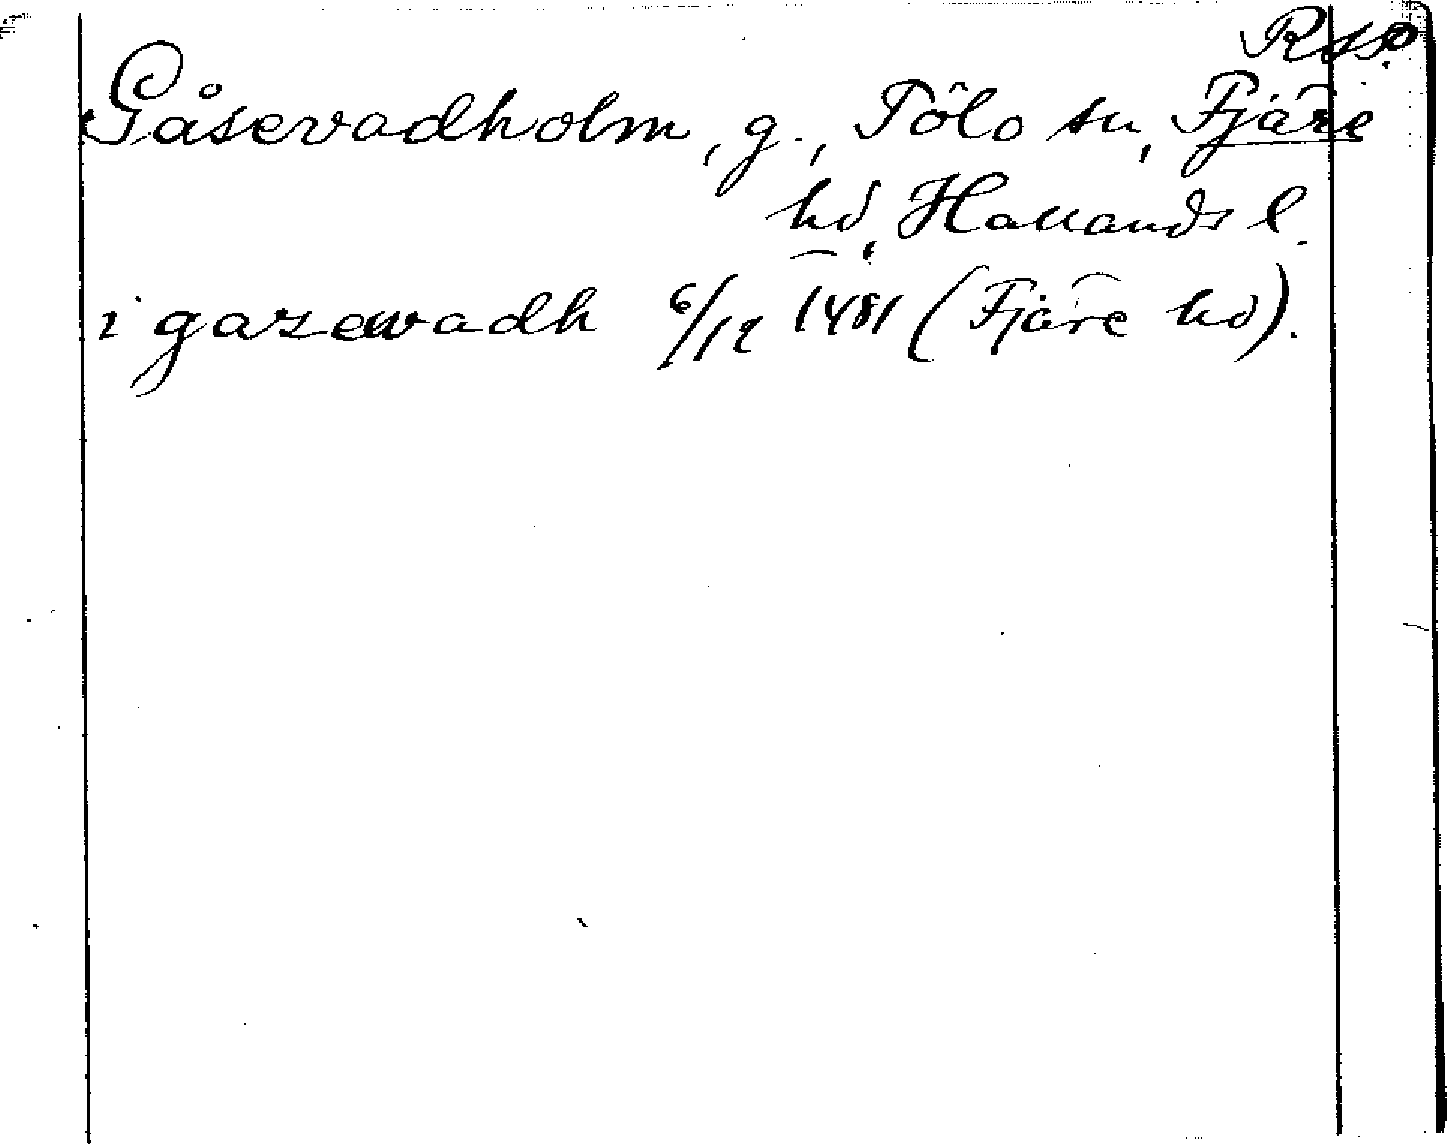 Gåsevadholm, g., Tölo sn, Fjäre
hd, Hallands l.
i gasewadh 6/12 1481 (Fjäre hd).